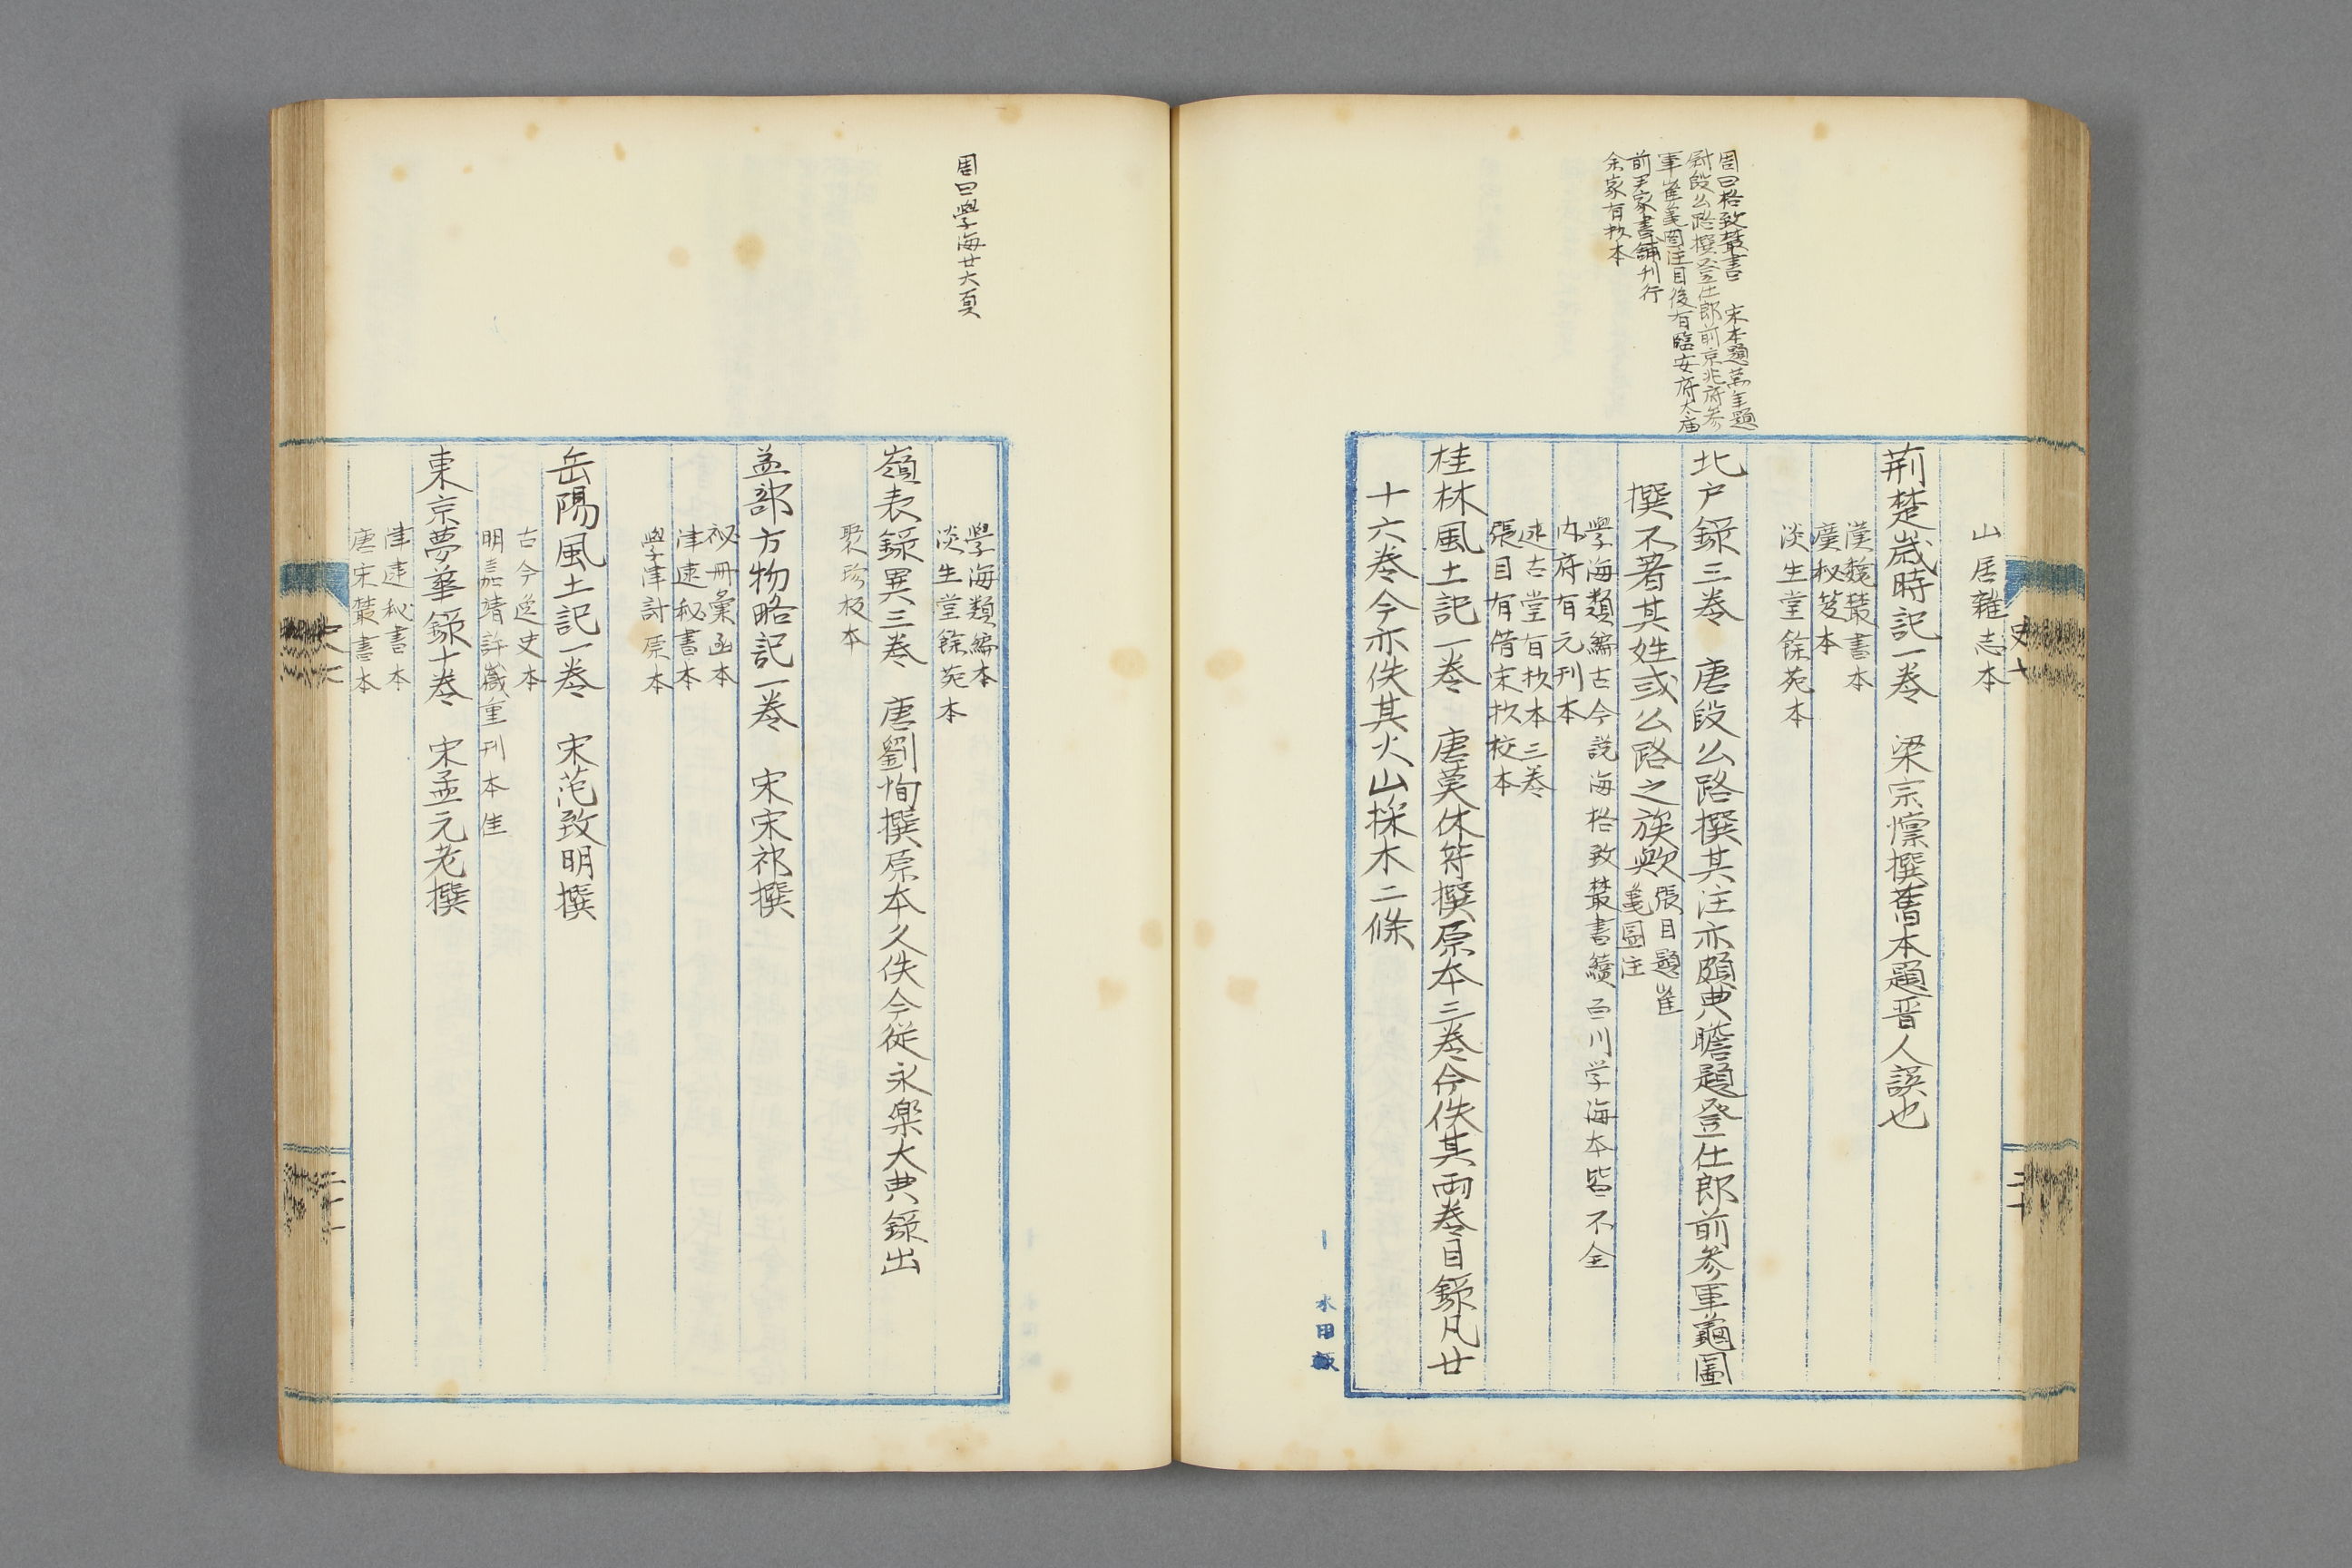 周曰格致叢書 宋本題萬年題
尉段公路撰登仕郎前京兆府參
軍崔龜圖注目後有臨安府太庙
前尹家書鋪刊行
余家有抄本
山居雜志本
荊楚嵗時記一卷 梁宗懍撰舊本題晋人誤也
漢魏叢書本
廣秘笈本
淡生堂餘苑本
北戸錄三卷 唐段公路撰其注亦頗典贍題登仕郎前參軍龜圖
撰不著其姓或公路之族歟
張目題崔
龜圖注
學海類編古今說海格致叢書續百川学海本皆不全
内府有元刊本
述古堂有抄本三卷
張目有舊宋抄校本
桂林風土記一卷 唐莫休符撰原本三卷今佚其兩卷目錄凡廿
十六卷今亦佚其火山採木二條
水田
史十
二十
周曰學海廿六頁
學海類編本
淡生堂餘苑本
嶺表錄異三卷 唐劉恂撰原本久佚今從永樂大典錄出
聚珍板本
益部方物略記一卷 宋宋祁撰
祕冊彙函本
津逮秘書本
學津討原本
岳陽風土記一卷 宋范致明撰
古今逸史本
明嘉靖許藏重刊本佳
東京夢華錄十卷 宋孟元老撰
津逮秘書本
唐宋叢書本